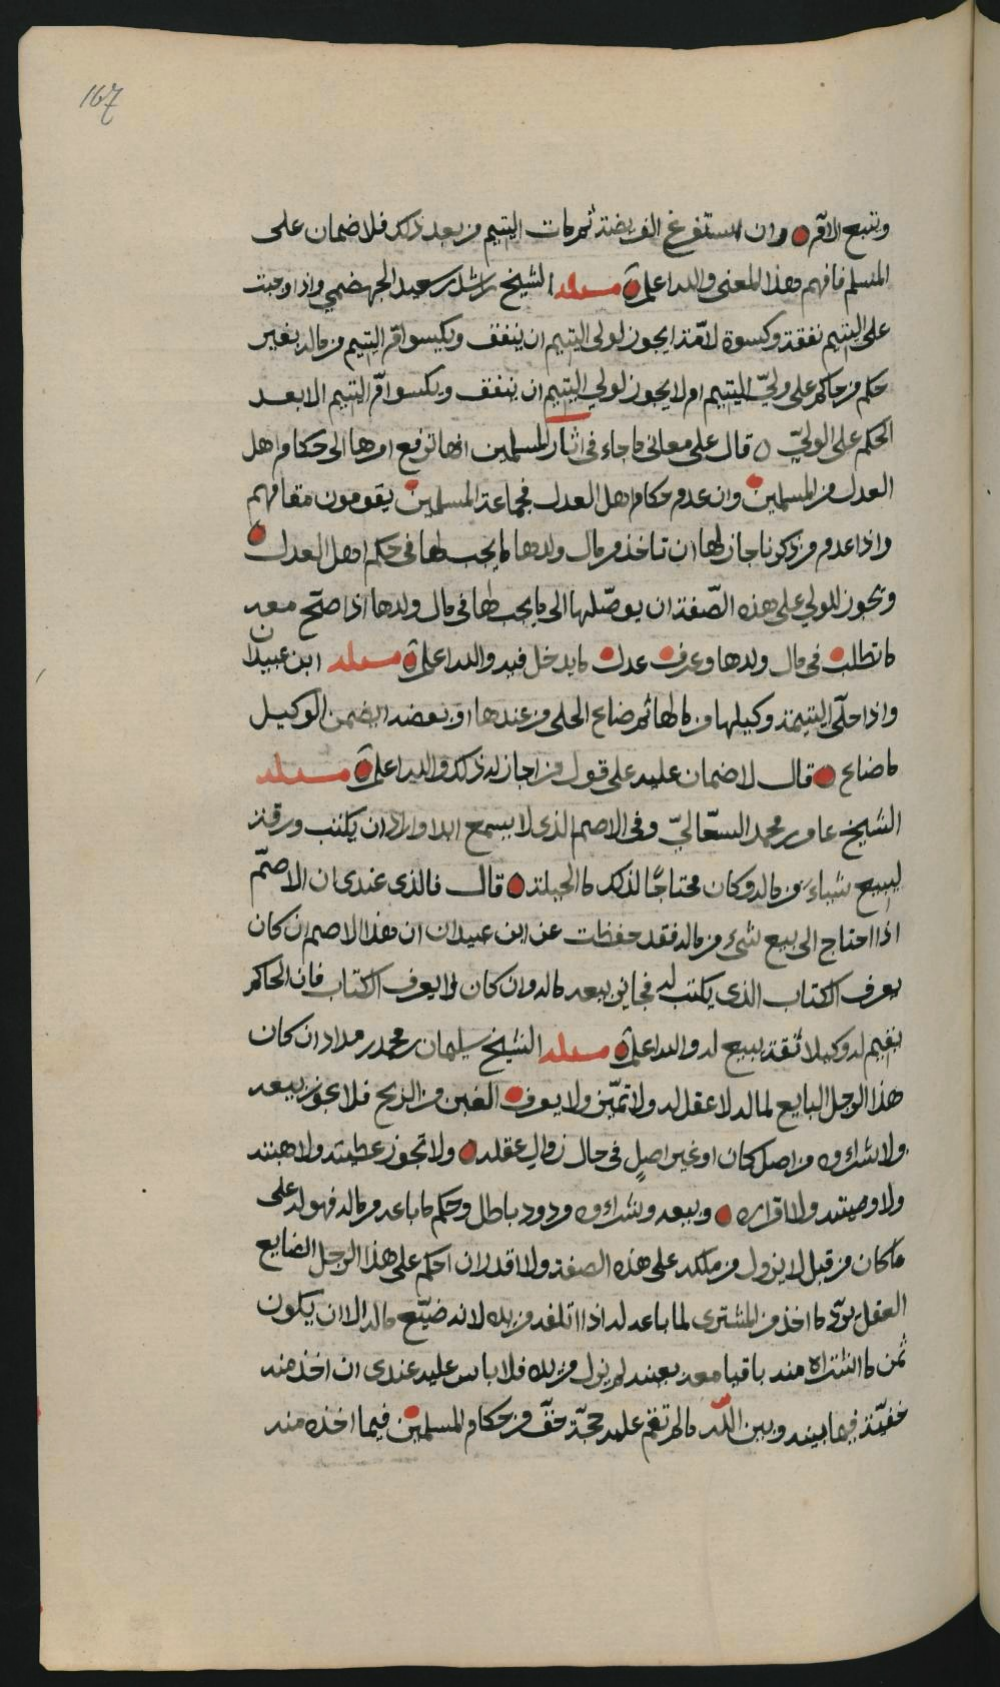 167
وتتبع الامّ وان استفرغ الفريضة ثم مات اليتيم من بعد ذلك فلا ضمان على
المسلم فافهم هذا المعنى والله اعلم مسئله الشيخ راشد بن سعيد الجهضمي واذا وجبت
على اليتيم نفقة وكسوة لامّه ايجوز لولي اليتيم ان ينفق ويكسوا امّ اليتيم من ماله بغير
حكم من حاكم على وليّ اليتيم ام لا يجوز لولي اليتيم ان ينفق ويكسوا امّ اليتيم الا بعد
الحكم على الوليّ قال على معاني ما جاء في اثار المسلمين انها ترفع امرها الى حكام اهل
العدل من المسلمين وان عدم حكام اهل العدل فجماعة المسلمين يقومون مقامهم
واذا عدم من ذكرنا جاز لها ان تاخذ من مال ولدها ما يجب لها في حكم اهل العدل
ويجوز للولي على هذه الصّفة ان يوصّلها الى ما يجب لها في مال ولدها اذا صحّ معه
ما تطلب في مال ولدها وعرف عدل ما يدخل فيه والله اعلم مسئله ابن عبيدان
واذا حلّى اليتيمة وكيلها من مالها ثم ضاع الحلي من عندها او بعضه ايضمن الوكيل
ما ضاع قال لا ضمان عليه على قول من اجاز له ذلك والله اعلم مسئله
الشيخ عامر بن محمد السعّاليّ وفي الاصم الذي لا يسمع ابدا واراد ان يكتب ورقة
لبيع شياء من ماله وكان محتاجًا لذلك ما الحيلة قال فالذي عندي ان الاصمّ
اذا احتاج الى بيع شيء من ماله فقد حفظت عن ابن عبيدان ان هذا الاصم ان كان
يعرف الكتاب الذي يكتب له فجايز بيعه ماله وان كان لا يعرف الكتاب فان الحاكم
يقيم له وكيلا ثقة يبيع له والله اعلم مسئله الشيخ سليمان بن محمد بن مداد ان كان
هذا الرجل البايع لماله لا عقل له ولا تميّز ولا يعرف الغبن من الربح فلا يجوز بيعه
ولا شراؤه من اصل كان او غير اصلٍ في حال زوال عقله ولا تجوز عطيته ولا هبته
ولا وصيته ولا اقراره وبيعه وشراؤه مردود باطل وحكم ما باعه من ماله فهو له على
ما كان من قبل لا يزول من ملكه على هذه الصفة ولا اقدر ان احكم على هذا الرجل الضايع
العقل بردّ ما اخذ من المشتري لما باعه له اذا اتلفه من يده لانه ضيّع ماله الا ان يكون
ثمن ما اشتراه منه باقيا معه بعينه لم يزول من يده فلا باس عليه عندي ان اخذ منه
خفيّة فيما بينه وبين اللّه ما لم تقم عليه حجّة حقّ من حكام المسلمين فيما اخذه منه